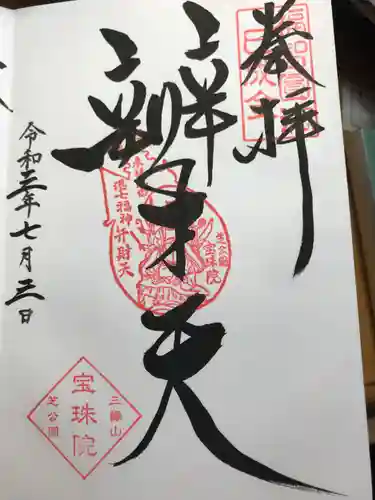 奉拝
辨才天
令和三年七月三日
港七福神弁財天
芝公園
宝珠院
三縁山
宝珠院
芝公園